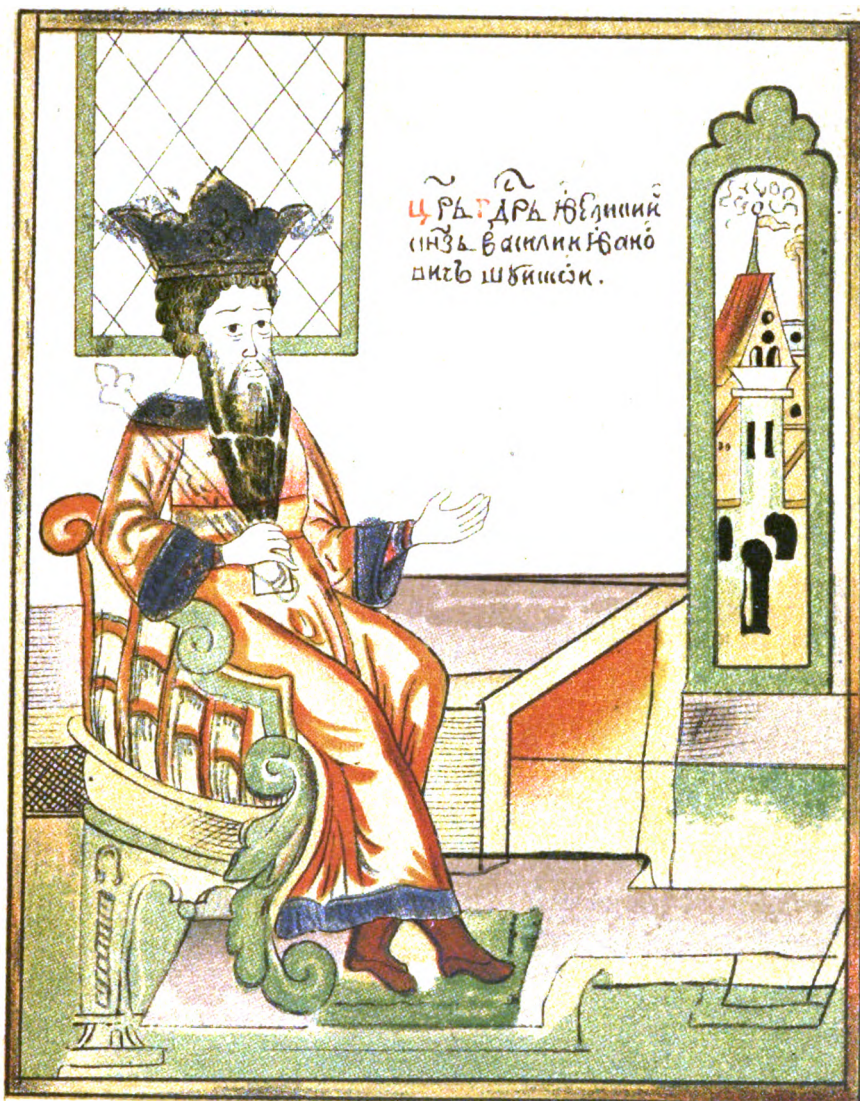 цр҃ь гдⷭ҇рь и҆ великиӥ
кн҃зь василии и҆вано
вичъ шꙋискѡи.